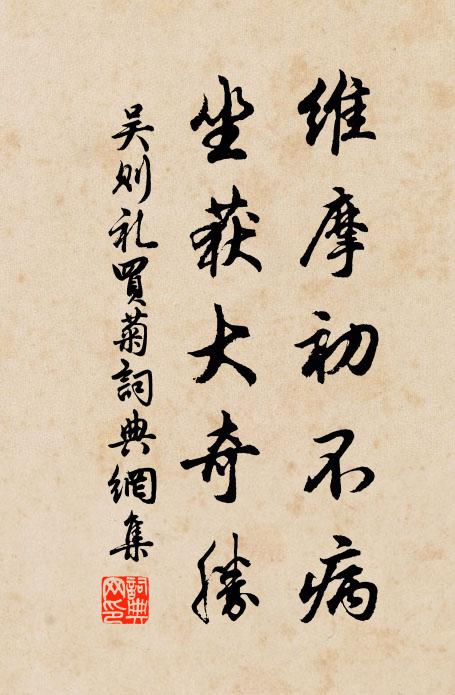 维摩初不病
坐获大奇勝
吴则礼買菊詞典網集
詞典